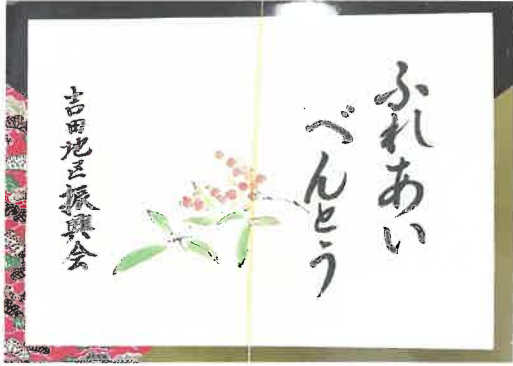 ふれあい
べんとう
吉田地区振興会